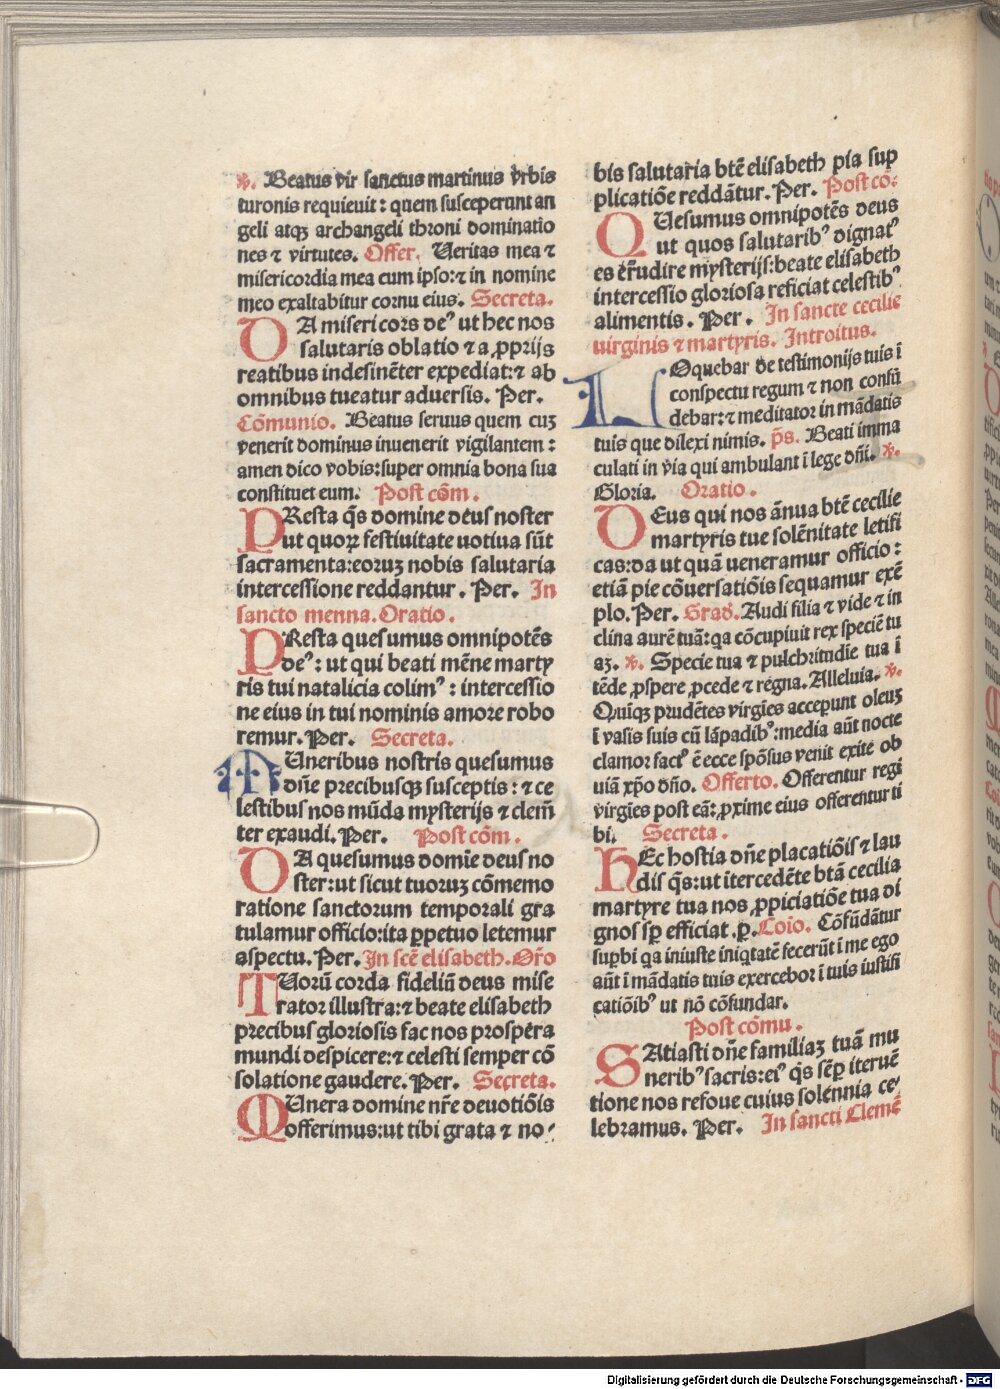 ℣. Beatus vir sanctus martinus vrbis
turonis requieuit : quem susceperunt an
geli atqꝫ archangeli throni dominatio
nes ⁊ virtutes. Offer. Ueritas mea ⁊
misericordia mea cum ipso:⁊ in nomine
meo exaltabitur cornu eius. Secreta.
DA misericors deꝰ ut hec nos
salutaris oblatio ⁊ a ꝓprijs
reatibus indesinēter expediat:⁊ ab
omnibus tueatur aduersis. Per.
Cōmunio. Beatus seruus quem cuꝫ
venerit dominus inuenerit vigilantem :
amen dico vobis:super omnia bona sua
constituet eum. Post cōm.
PResta q̄s domine deus noster
ut quoꝝ festiuitate uotiua sūt
sacramenta:eoruꝫ nobis salutaria
intercessione reddantur. Per. In
sancto menna. Oratio.
PResta quesumus omnipotēs
deꝰ: ut qui beati mēne marty
ris tui natalicia colimꝰ : intercessio
ne eius in tui nominis amore robo
remur. Per. Secreta.
MUneribus nostris quesumus
dn̄e precibusqꝫ susceptis : ⁊ ce
lestibus nos mūda mysterijs ⁊ clem̄
ter exaudi. Per. Post cōm.
DA quesumus domie deus no
ster:ut sicut tuoruꝫ cōmemo
ratione sanctorum temporali gra
tulamur officio:ita ꝑpetuo letemur
aspectu. Per. In sc̄e elisabeth. Or̄o
TUorū corda fideliū deus mise
rator illustra:⁊ beate elisabeth
precibus gloriosis fac nos prospera
mundi despicere:⁊ celesti semper cō
solatione gaudere. Per. Secreta.
MUnera domine nr̄e deuotiōis
offerimus:ut tibi grata ⁊ no⸗
bis salutaria btē elisabeth pia sup
plicatiōe reddātur. Per. Post cō:
QUesumus omnipotēs deus
ut quos salutaribꝰ dignatꝰ
es erudire mysterijs:beate elisabeth
intercessio gloriosa reficiat celestibꝰ
alimentis. Per. In sancte cecilie
uirginis ⁊ martyris. Introitus.
LOquebar de testimonijs tuis ī
conspectu regum ⁊ non confū
debar:⁊ meditator in mādatis
tuis que dilexi nimis. p̄s. Beati imma
culati in via qui ambulant ī lege dn̄i. ℣.
Gloria. Oratio.
DEus qui nos ānua btē cecilie
martyris tue solēnitate letifi
cas:da ut quā ueneramur officio :
etiā pie cōuersatiōis sequamur exē
plo. Per. Grad. Audi filia ⁊ vide ⁊ in
clina aurē tuā:qa cōcupiuit rex speciē tu
aꝫ. ℣. Specie tua ⁊ pulchritudīe tua ī
tēde ꝓspere ꝓcede ⁊ regna. Alleluia. ℣.
Quīqꝫ prudētes virgīes accepunt oleuꝫ
ī vasis suis cū lāpadibꝰ:media aūt nocte
clamor factꝰ ē ecce spōsus venit exite ob
uiā xp̄o dn̄o. Offerto. Offerentur regi
virgīes post eā: ꝓxime eius offerentur ti
bi. Secreta.
HEc hostia dn̄e placatiōis ⁊ lau
dis q̄s:ut ītercedēte btā cecilia
martyre tua nos ꝓpiciatiōe tua di
gnos sꝑ efficiat .ꝑ. Coio. Cōfūdātur
supbi qa iniuste iniqtatē fecerūt ī me ego
aūt ī mādatis tuis exercebor ī tuis iustifi
catiōibꝰ ut nō cōfundar.
Post cōmu.
SAtiasti dn̄e familiaꝫ tuā mu
neribꝰ sacris:eiꝰ q̄s sēꝑ iteruē
tione nos refoue cuius solennia ce⸗
lebramus. Per. In sancti Clemē
Digitalisierung gefördert durch die Deutsche Forschungsgemeinschaft - DFG